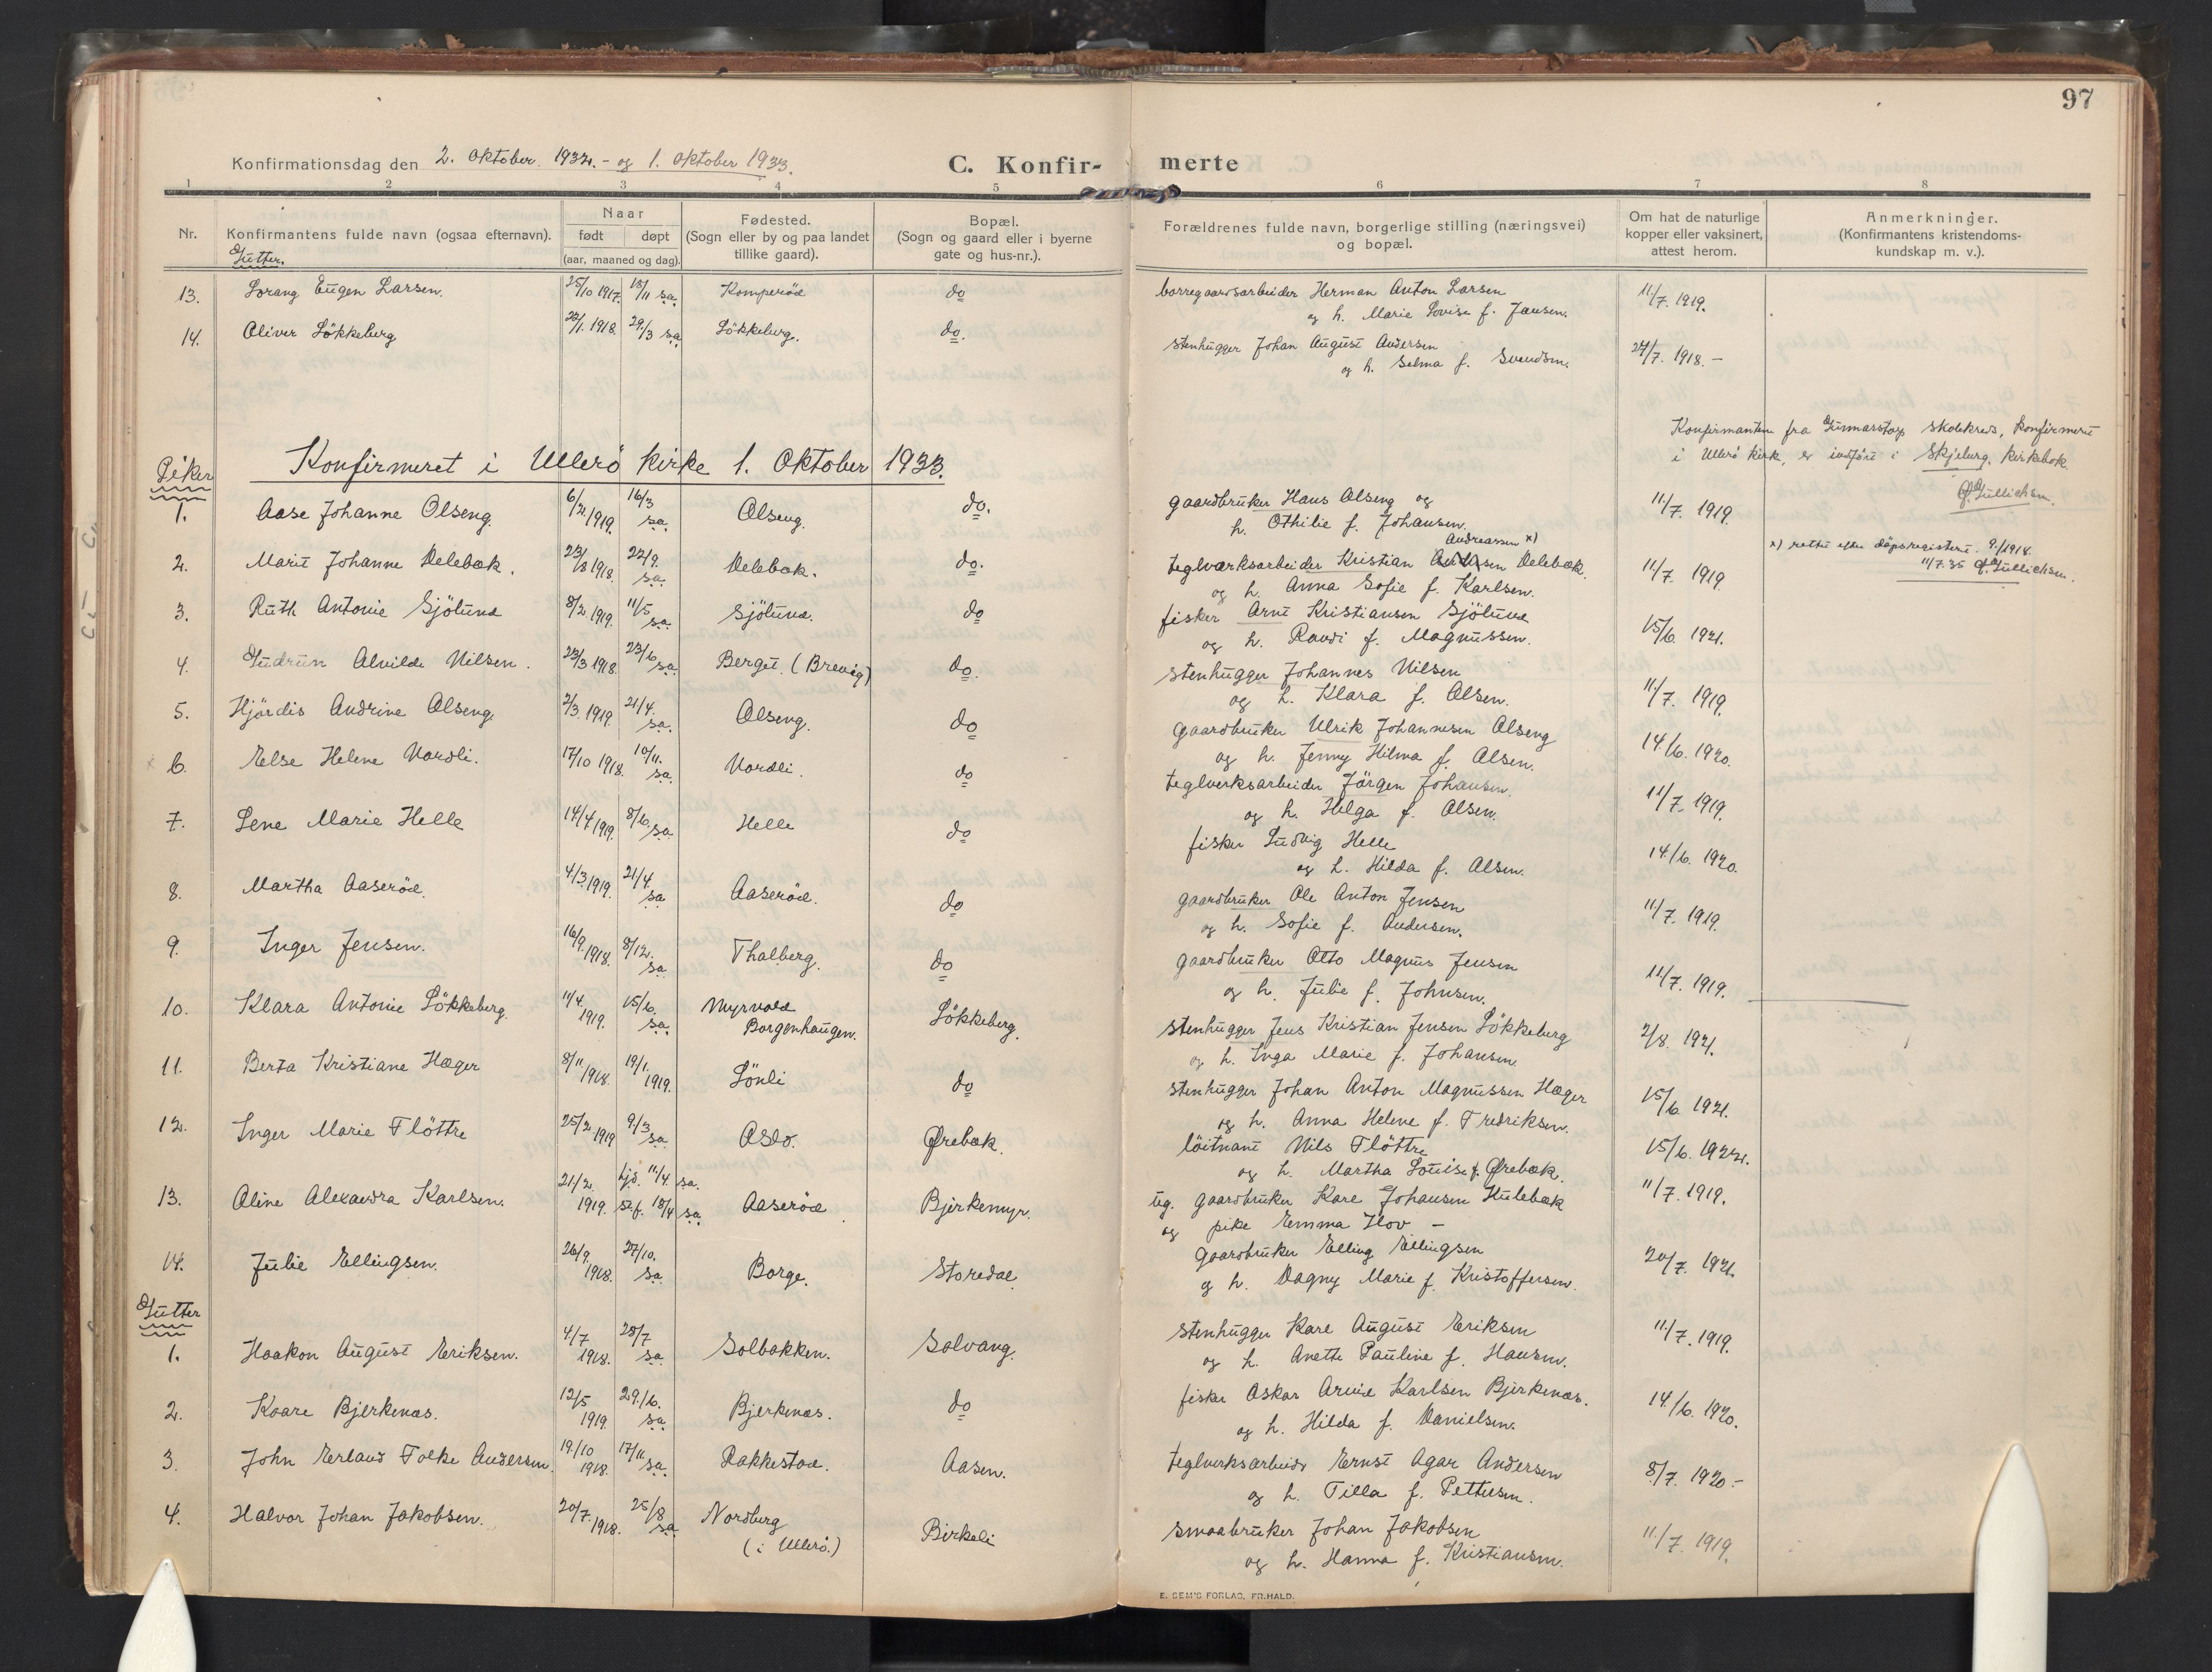 97
Konfirmationsdag den 2. oktober 1932. - og 1. oktober 1933.
C. Konfir- merte
1 2 3 4 5 6 7 8
Nr. Konfirmantens fulde navn (ogsaa efternavn). Naar født døpt (aar, maaned og dag). Fødested. (Sogn eller by og paa landet tillike gaard). Bopæl. (Sogn og gaard eller i byerne gate og hus-nr.). Forældrenes fulde navn, borgerlige stilling (næringsvei) og bopæl. Om hat de naturlige kopper eller vaksinert, attest herom. Anmerkninger. (Konfirmantens kristendoms-kundskap m. v.).
Gutter.
13. Lorang Eugen Larsen. 25/10 1917. 18/11 s.a. Komperöd do borregaardsarbeider Herman Anton Larsen 11/7. 1919.
og h. Marie Lovise f. Jansen.
14. Oliver Lökkeberg 1. 1918. 29/3 s.a. Lökkeberg. do. stenhugger Johan August Andersen 24/7. 1918. -
og h. Selma f. Svendsen.
Konfirmanten fra Gunnarstorp skolekreds, konfirmert
i Ullerö kirke, er indført i Skjeberg kirkebok.
Piker
Konfirmeret i Ullerö kirke 1. oktober 1933.
1. Aase Johanne Olseng. 6/2. 1919. 16/3 s.a. Olseng. do. gaardbruker Hans Olseng og 11/7. 1919.
h. Othilie f. Johansen.
Andreassen x)
x) rettet efter dåpsregisteret. 9/1918.
11/7.35
2. Marit Johanne Delebæk. 23/8 1918. 22/9. s.a. Delebæk. do. teglverksarbeider Kristian Delebæk. 11/7 1919.
og h. Anna Sofie f. Karlsen.
3. Ruth Antonie Sjölund 8/2. 1919. 11/5 s.a. Sjölund. do fisker Arnt Kristiansen Sjölund 15/6. 1921.
og h. Randi f. Magnussen.
4. Gudrun Alvilde Nilsen. 23/3 1918. 23/6 s.a. Berget (Brevig) do. stenhugger Johannes Nilsen 11/7. 1919.
og h. Klara f. Olsen.
5. Hjördis Andrine Olseng. 2/3. 1919. 21/4. s.a. Olseng. do gaardbruker Ulrik Johannesen Olseng 14/6. 1920.
og h. Jenny Hilma f. Olsen.
6. Else Helene Nordli. 17/10 1918. 10/11. s.a. Nordli. do teglverksarbeider Jörgen Johansen. 11/7. 1919.
og h. Helga f. Olsen.
7. Lene Marie Helle 14/4 1919. 8/6 s.a. Helle do fisker Ludvig Helle 14/6. 1920.
og h. Hilda f. Olsen.
8. Martha Aaseröd. 4/3. 1919. 21/4 s.a. Aaseröd. do gaardbruker Ole Anton Jensen 11/7. 1919.
og h. Sofie f. Andersen.
9. Inger Jensen. 16/9. 1918. 8/12. s.a. Thalberg. do gaardbruker Otto Magnus Jensen 11/7. 1919.
og h. Julie f. Johnsen.
10. Klara Antonie Lökkeberg. 11/4. 1919. 15/6. s.a. Myrvold Borgenhaugen. Lökkeberg. stenhugger Jens Kristian Jensen Lökkeberg 2/8. 1921.
og h. Inga Marie f. Johansen.
11. Berta Kristiane Hæger 8/11 1918. 19/1. 1919. Lönli do stenhugger Johan Anton Magnussen Hæger 15/6 1921.
og h. Anna Helene f. Fredriksen.
12. Inger Marie Flöttre 25/2. 1919 9/3 s.a. Oslo. Ørebæk. löitnant Nils Flöttre 15/6. 1922.
og h. Martha Louise f. Ørebæk.
13. Aline Alexandra Karlsen. 21/2. 1919. hjd. 11/4. s.a. st.f. 18/4 s.a. Aaseröd Bjerkemyr. ug. gaardbruker Karl Johansen Hulebæk 11/7. 1919.
og pike Emma Hov -
14. Julie Ellingsen. 26/9. 1918. 27/10. s.a. Borge. Storedal gaardbruker Elling Ellingsen 20/7. 1921.
og h. Dagny Marie f. Kristoffersen.
Gutter
1. Haakon August Eriksen. 4/7 1918. 28/7 s.a. Solbakken. Solvang. stenhugger Karl August Eriksen 11/7. 1919.
og h. Anette Pauline f. Hansen.
2. Kaare Bjerkenæs. 12/5 1919. 29/6. s.a. Bjerkenæs. do fisker Oskar Arvid Karlsen Bjerkenæs. 14/6. 1920.
og h. Hilda f. Danielsen.
3. John Erland Folke Andersen. 19/10 1918. 17/11. s.a. Rakkestad. Aasen. teglverksarbeider Ernst Agar Andersen 8/7. 1920. -
og h. Tilla f. Pettersen.
4. Halvor Johan Jakobsen. 20/7. 1918. 25/8 s.a. Nordberg (i Ullerö.) Birkeli smaabruker Johan Jakobsen 11/7. 1919.
og h. Hanna f. Kristiansen.
E. SEM'S FORLAG, FR.HALD.